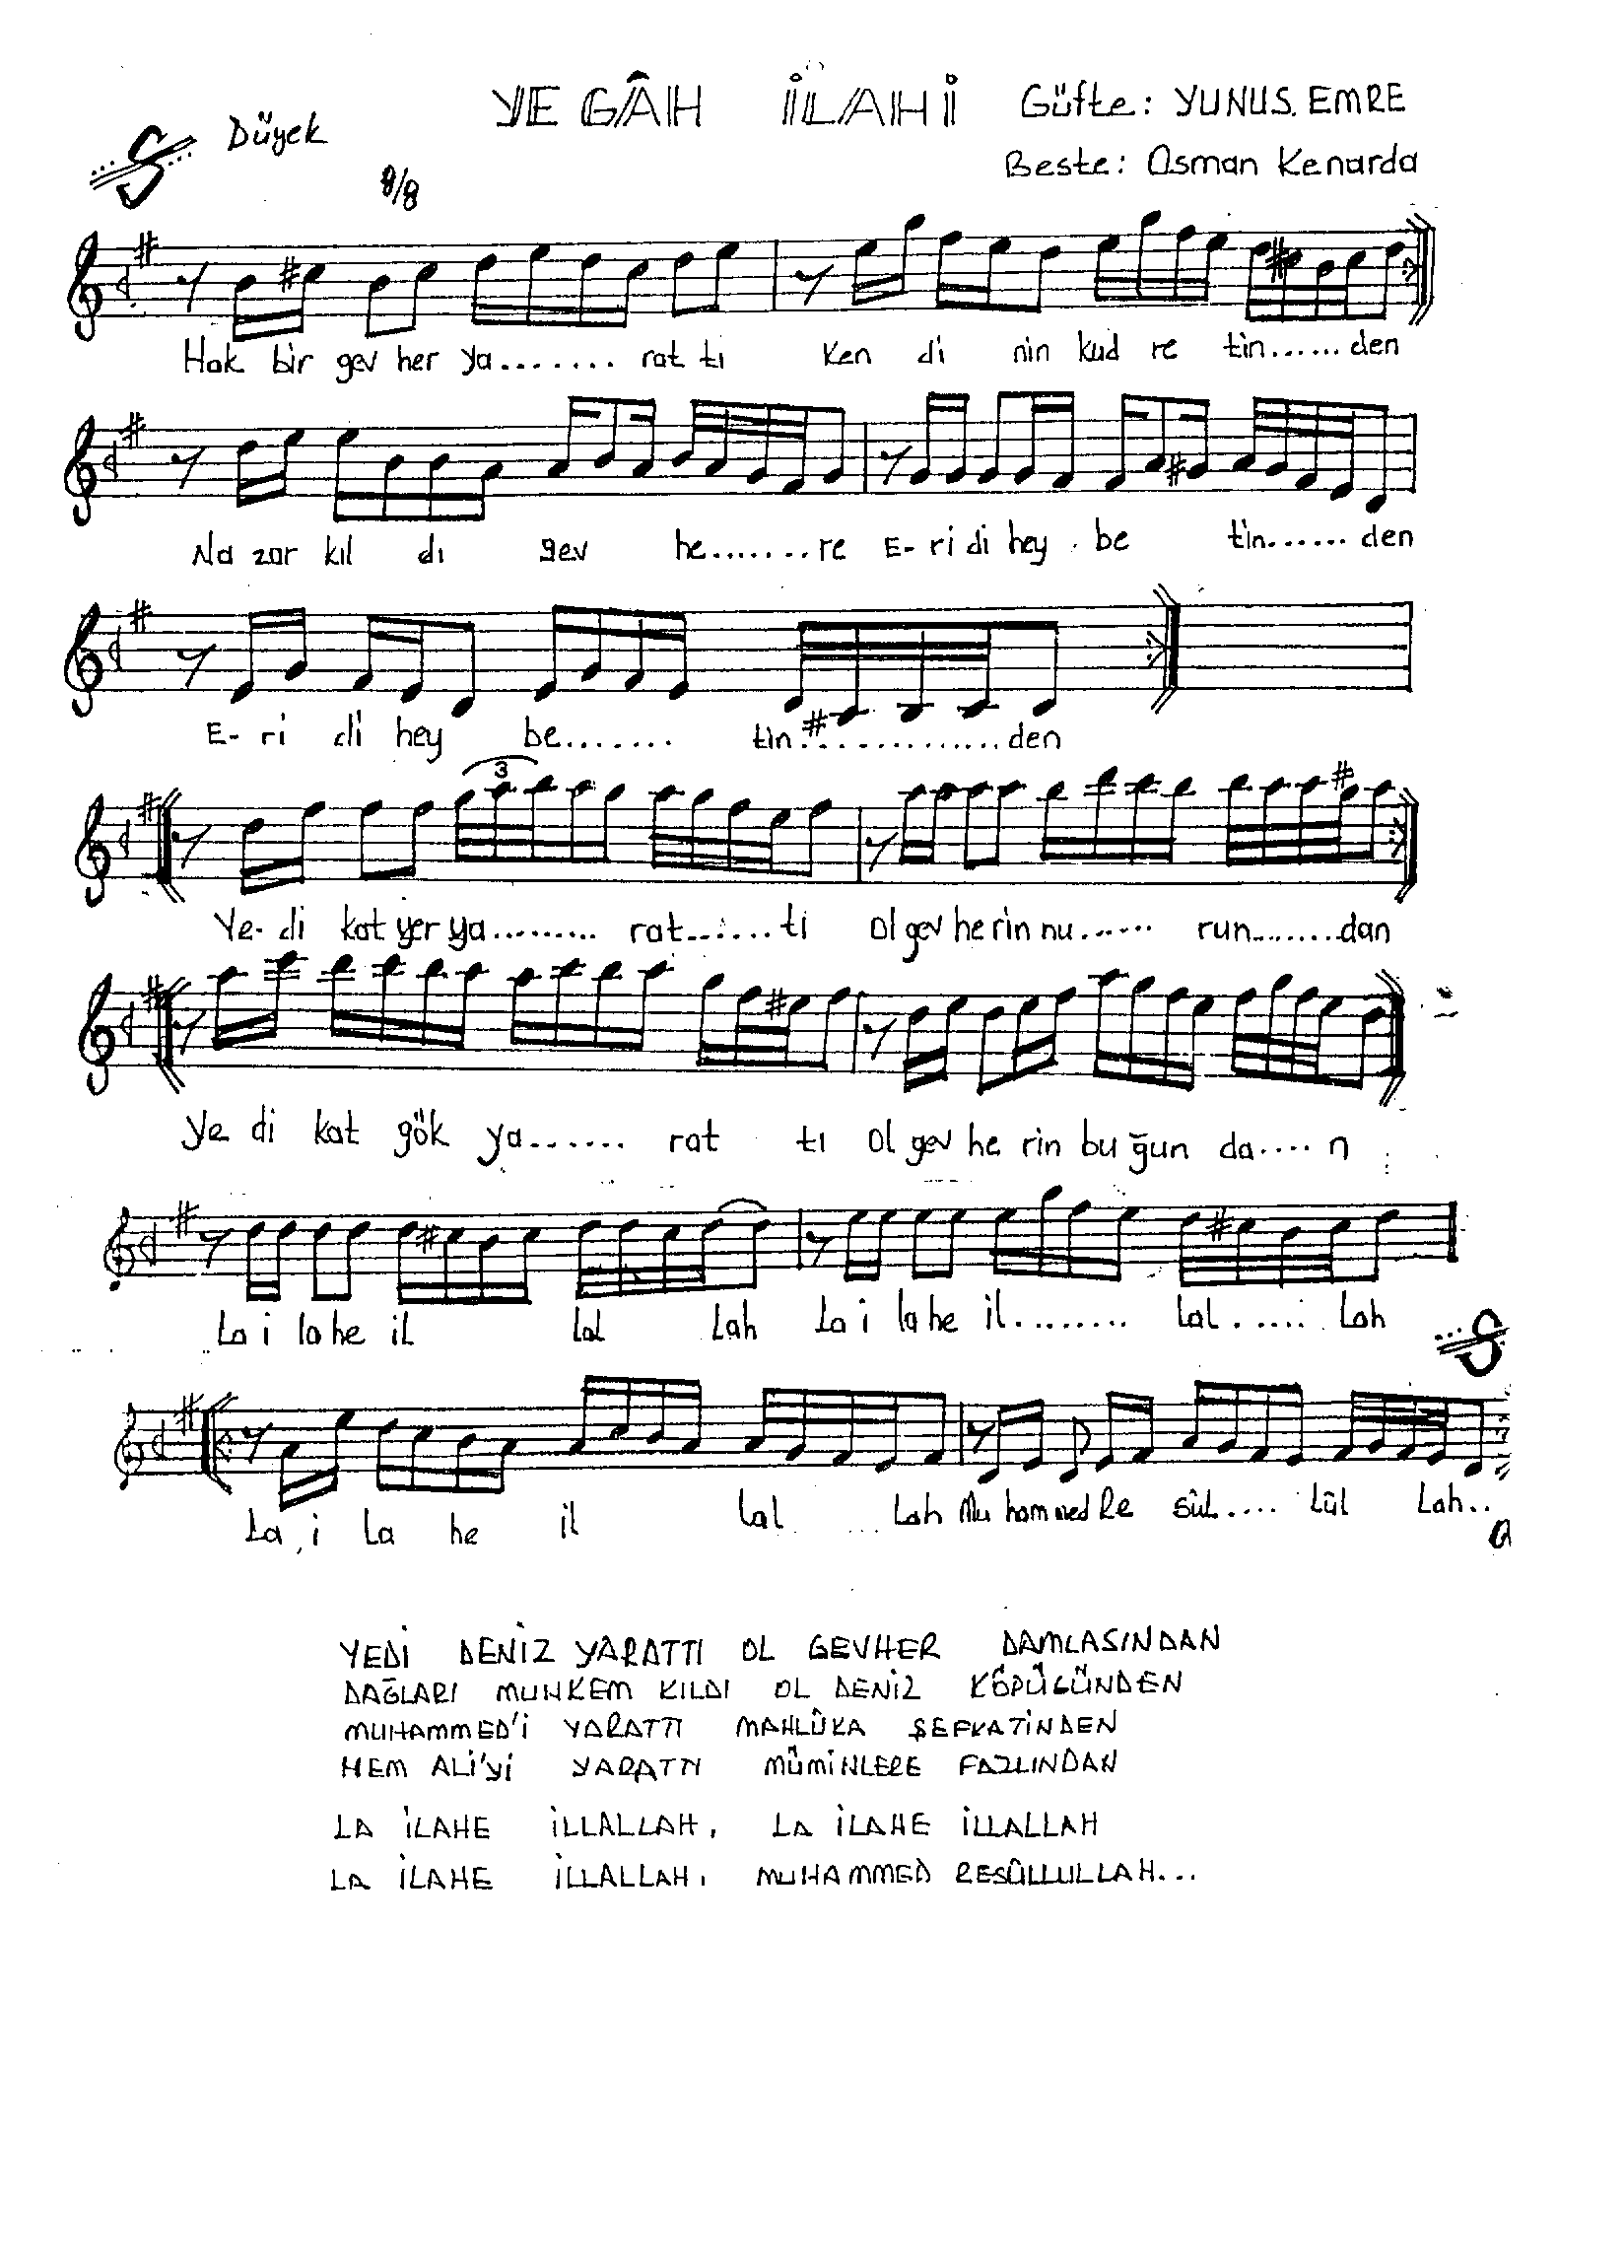 YEGÂH İLAHİ Güfte: YUNUS. EMRE
Düyek
Beste: Osman Kenarda
8/8
Hak bir gev her ya........ rat tı Ken di nin kud re tin...... den
Na zar kıl dı gev he........ re E- ri di hey be tin...... den
E- ri di hey be....... tin.............. den
3
Ye- di kat yer ya......... rat....... ti ol gev he rin nu...... run........ dan
Ye di kat gök ya...... rat tı ol gev he rin bu ğun da.... n
La i la he il lal Lah La i la he il........ lal..... Lah
La i La he il lal Lah Mu ham med Re sûl.... lûl Lah..
YEDİ DENİZ YARATTI OL GEVHER DAMLASINDAN
DAĞLARI MUHKEM KILDI OL DENİZ KÖPÜĞÜNDEN
MUHAMMED'İ YARATTI MAHLÛKA ŞEFKATİNDEN
HEM ALİ'Yİ YARATTI MÜMİNLERE FAZLINDAN
LA İLAHE İLLALLAH, LA İLAHE İLLALLAH
LA İLAHE İLLALLAH, MUHAMMED RESÛLLULLAH...